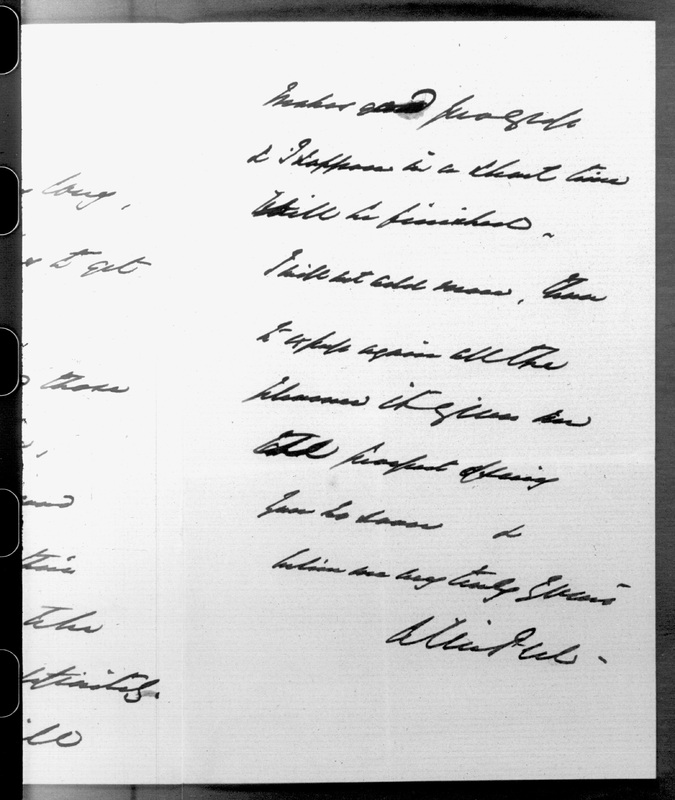 long,
to get
those
this
take
ill
Makes good progress
& I suppose in a short time
Will be finished.
I will not add more, than
to express again all the
pleasure it gives me
the prospect of seeing
you so soon &
believe me very truly yours